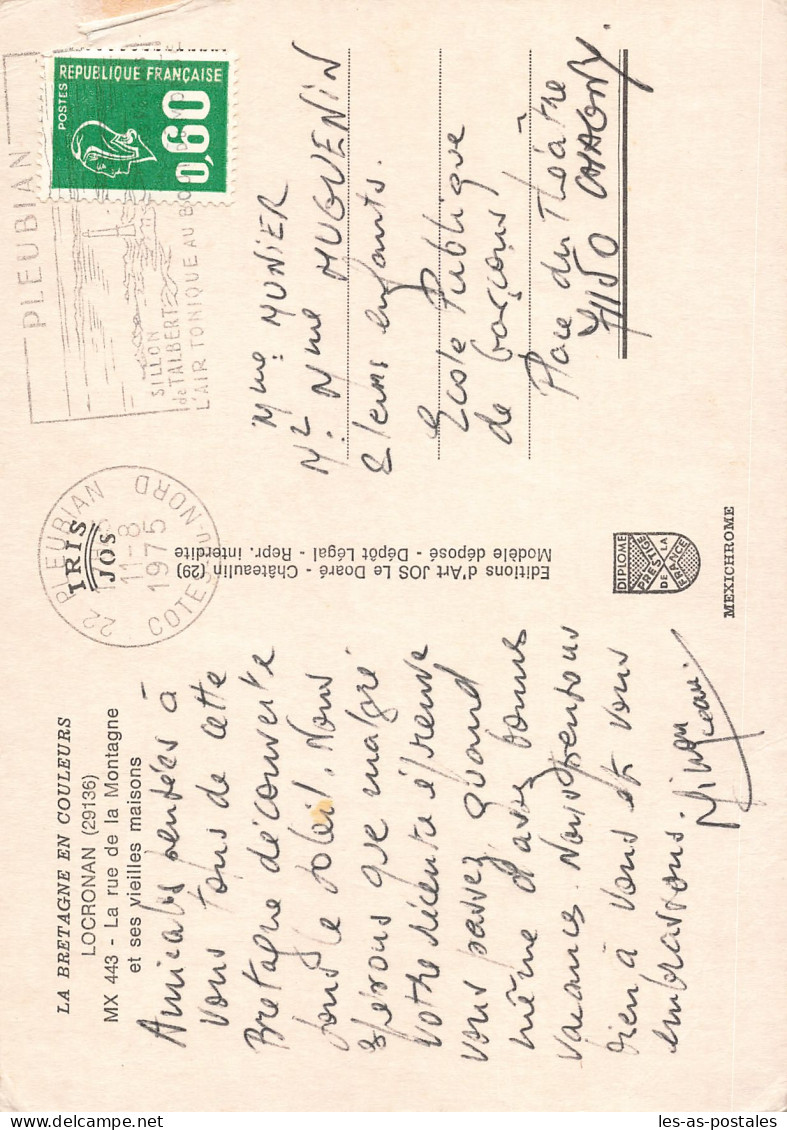 LA BRETAGNE EN COULEURS
LOCRONAN (29136)
MX 443 - La rue de la Montagne
et ses vieilles maisons
Amicales pensées à
vous tous de cette
Bretagne découverte
sous le soleil. Nous
espérons que malgré
votre récente épreuve
vous passez quand
même d'assez bonnes
vacances. Nous pensons
bien à vous et vous
embrassons.
IRIS
JOS
Editions d'Art JOS Le Doaré - Châteaulin (29)
Modèle déposé - Dépôt Légal - Repr. interdite
DIPLOME
PRESTIGE
DE LA
FRANCE
MEXICHROME
22 PLEUBIAN
11-8
1975
COTES-DU-NORD
PLEUBIAN
SILLON
de TALBERT
L'AIR TONIQUE AU BOUT
REPUBLIQUE FRANÇAISE
POSTES
0,60
Mme MUNIER
Mr. Mme HUGUENIN
& leurs enfants.
Ecole Publique
de garçons
Place du Théâtre
71150 CHAGNY.
les-as-postales